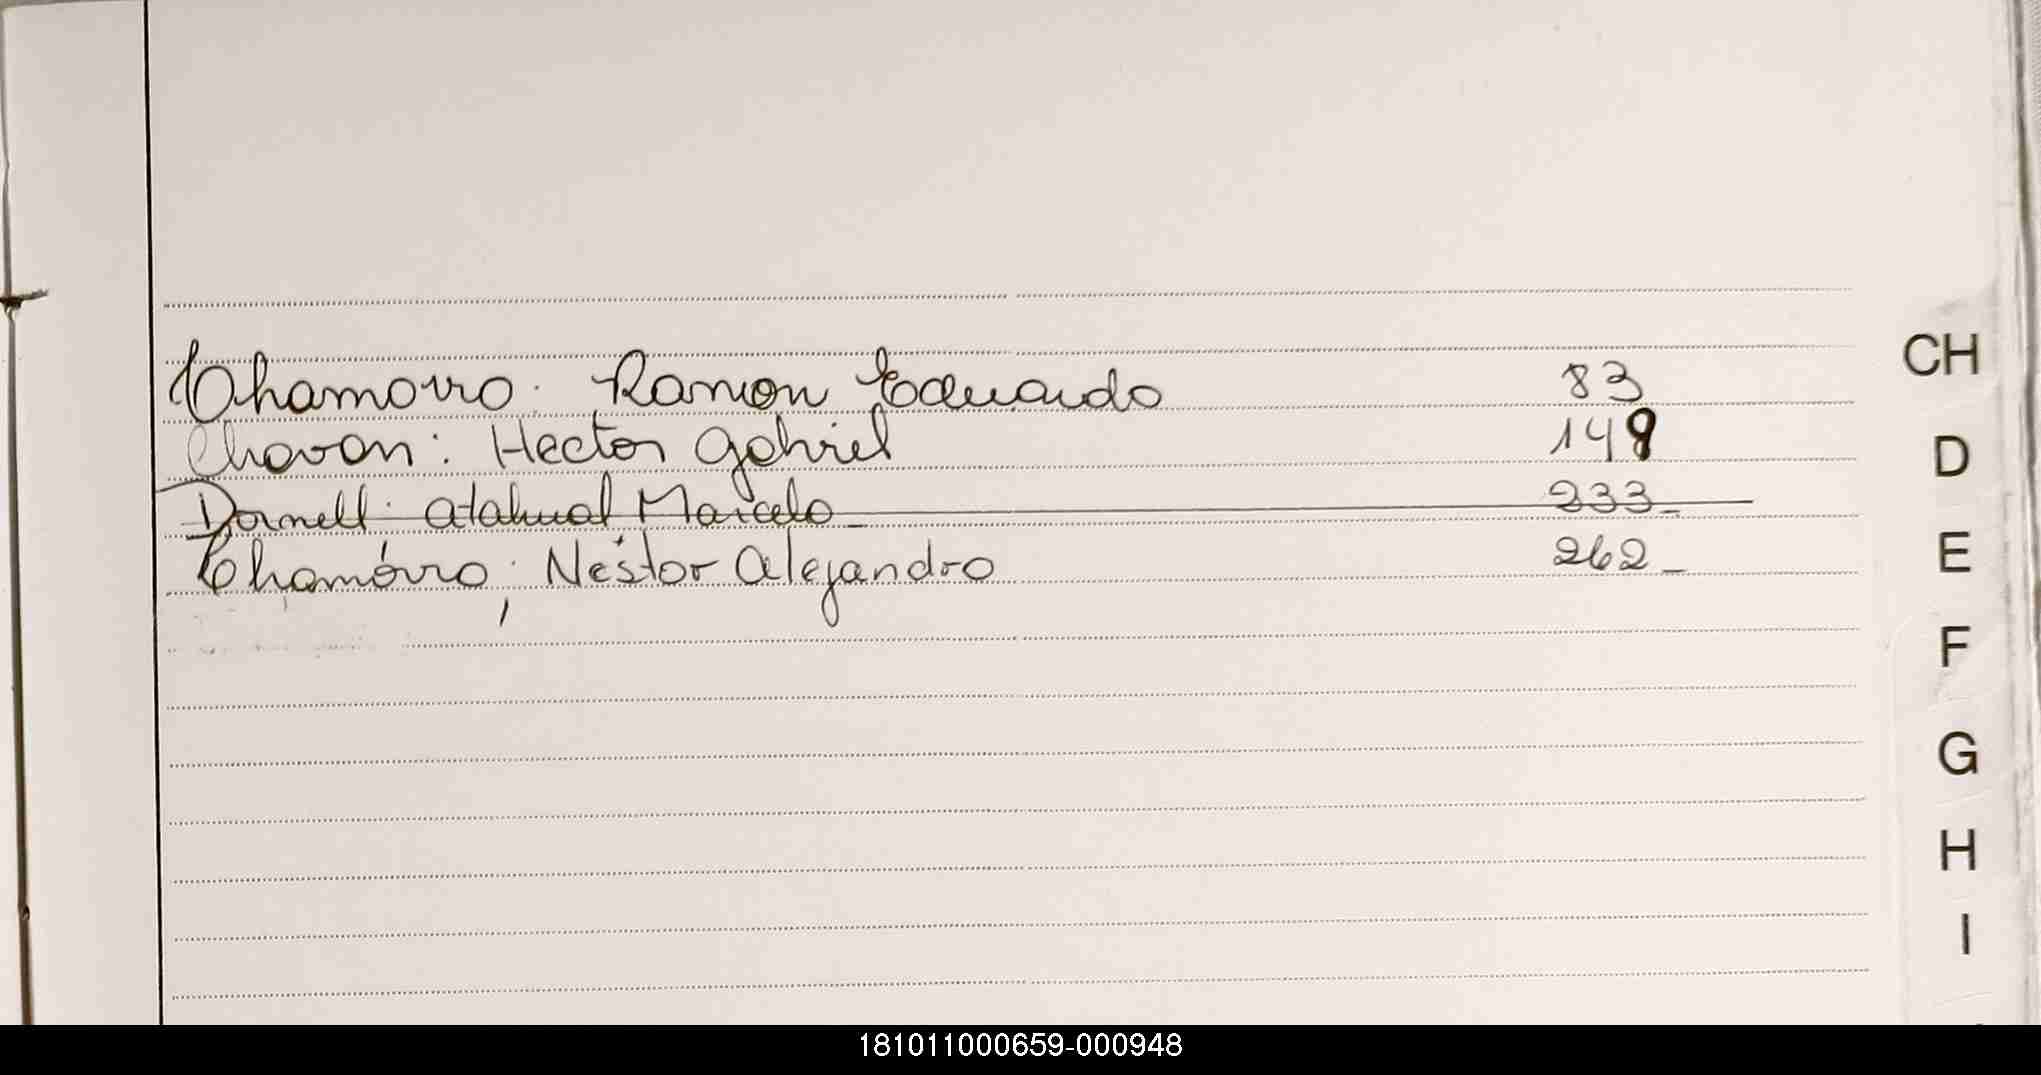 Chamorro. Ramon Eduardo 83
CH
Chavan: Hector Gabriel 148
D
Dornell. Atahual Marcelo 233_
E
Chamórro, Néstor Alejandro 262_
F
G
H
I
181011000659-000948